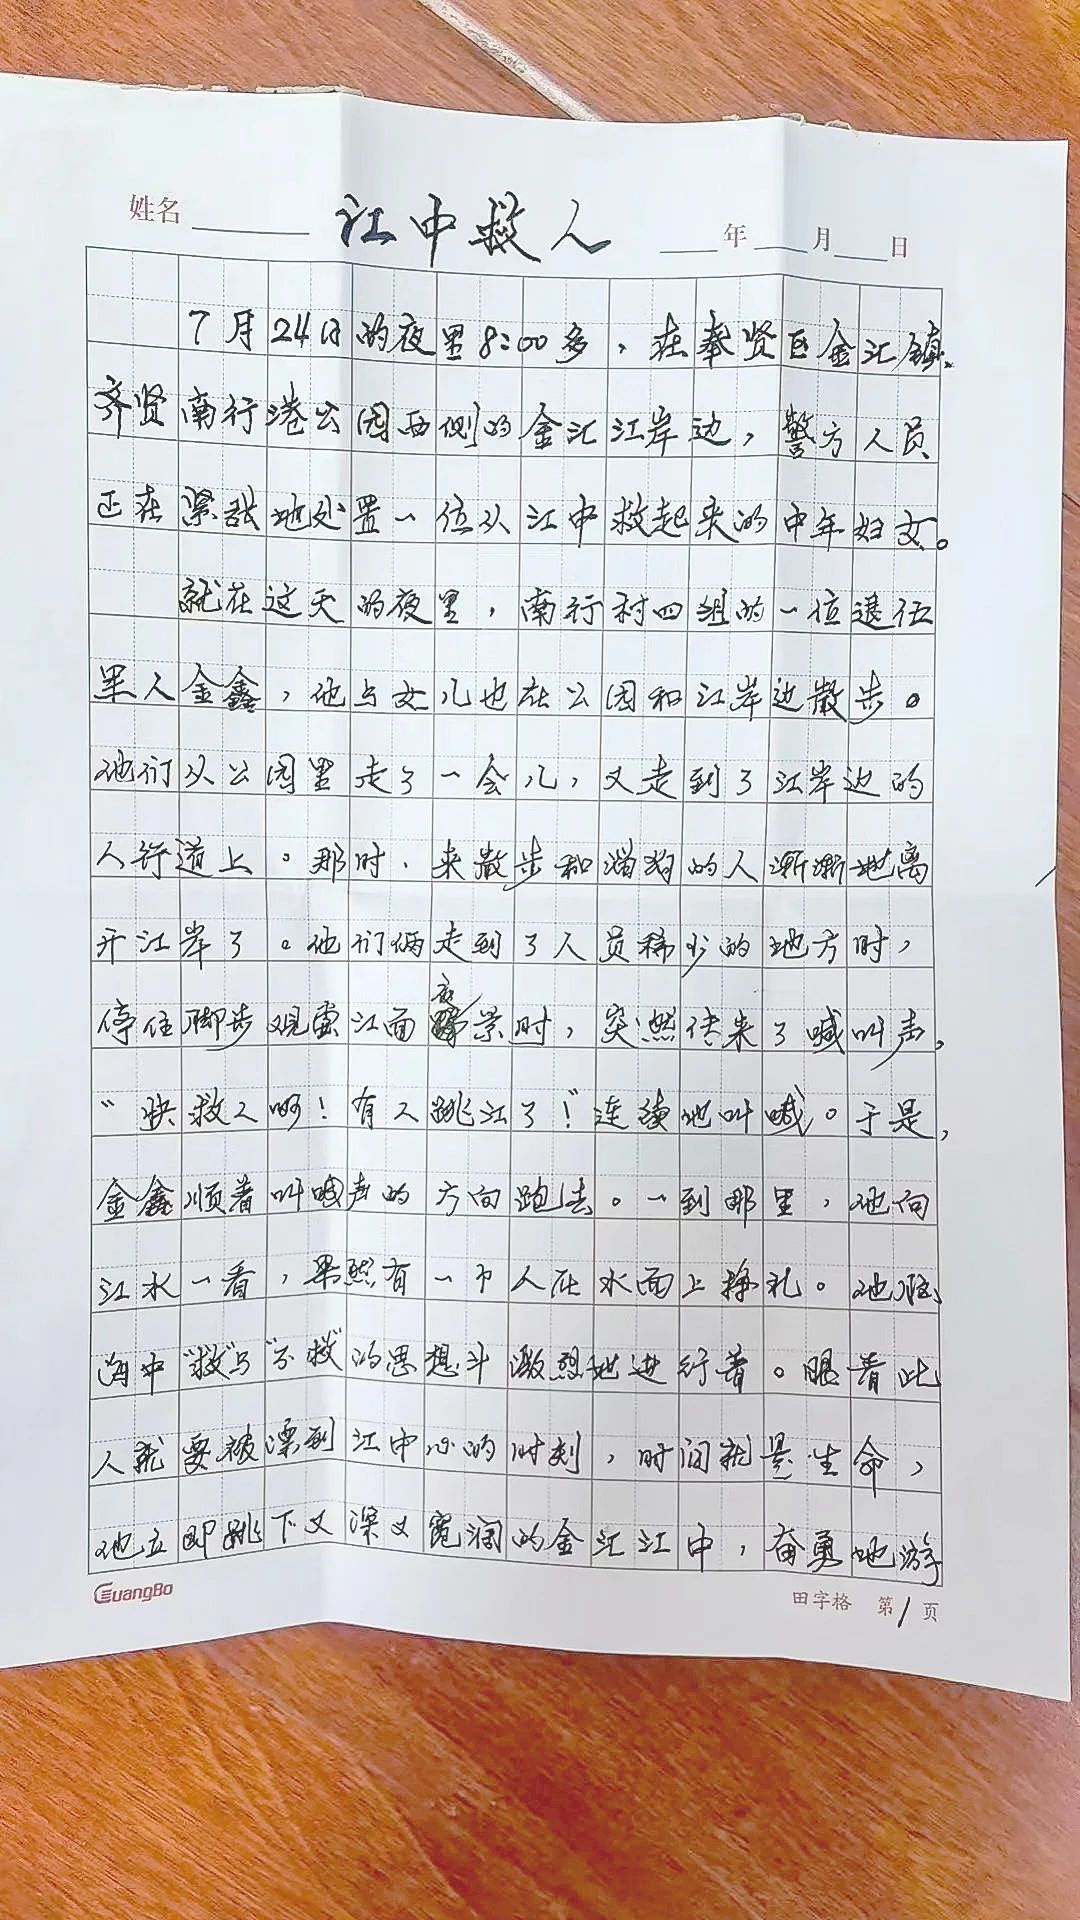 姓名 江中救人 年 月 日
7月24日的夜里8:00多,在奉贤区金汇镇、
齐贤南行港公园西侧的金汇江岸边,警方人员
正在紧张地处置一位从江中救起来的中年妇女。
就在这天的夜里,南行村四组的一位退伍
军人金鑫,他与女儿也在公园和江岸边散步。
他们从公园里走了一会儿,又走到了江岸边的
人行道上。那时,来散步和遛狗的人渐渐地离
开江岸了。他们俩走到了人员稀少的地方时,
停住脚步观赏江面夜景时,突然传来了喊叫声,
“快救人啊!有人跳江了!”连续地叫喊。于是,
金鑫顺着叫喊声的方向跑去。一到那里,他向
江水一看,果然有一个人在水面上挣扎。他脑
海中“救”与“不救”的思想斗激烈地进行着。眼看此
人就要被漂到江中心的时刻,时间就是生命,
他立即跳下又深又宽阔的金汇江中,奋勇地游
GuangBo 田字格 第1页